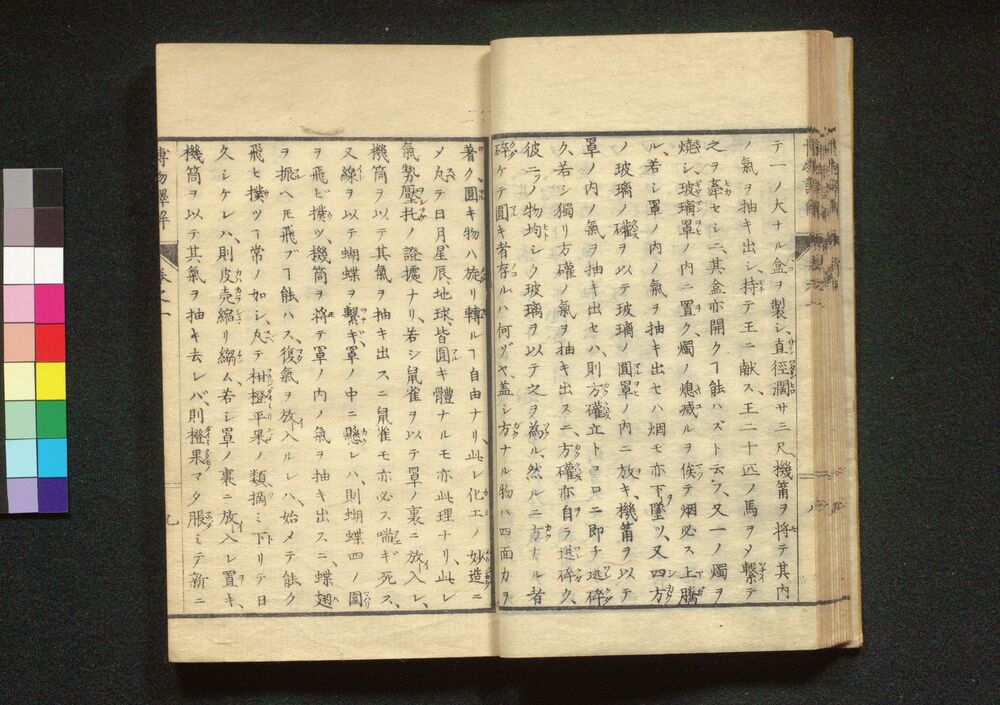 テ一ノ大ナル盒ヲ製シ、直徑濶サ三尺機筩ヲ將テ其内
ノ氣ヲ抽キ出シ、持テ王ニ献ス、王二十匹ノ馬ヲメ繋テ
之ヲ牽セシニ其盒亦開クヿ能ハズト云フ、又一ノ燭ヲ
燒シ、玻璃罩ノ内ニ置ク、燭ノ熄滅ルヲ俟テ烟必ス上騰
ル、若シ罩ノ内ノ氣ヲ抽キ出セハ烟モ亦下墜ツ、又四方
ノ玻璃ノ礶ヲ以テ玻璃ノ圓罩ノ内ニ放キ、機筩ヲ以テ
罩ノ内ノ氣ヲ抽キ出セハ、則方礶立トコロニ即チ迸碎
ク、若シ獨リ方礶ノ氣ヲ抽キ出スニ、方礶亦自ラ迸碎ク、
彼二ノ物均シク玻璃ヲ以テ之ヲ為ル、然ルニ方ナル者
碎ケテ圓キ者存ルハ何ゾヤ、蓋シ方ナル物ハ四面力ヲ
著ク、圓キ物ハ旋リ轉ルヿ自由ナリ、此レ化工ノ妙造ニ
メ凡テ日月、星辰、地球、皆圓キ體ナルモ亦此理ナリ、此レ
氣勢壓托ノ證據ナリ、若シ鼠雀ヲ以テ罩ノ裏ニ放入レ、
機筒ヲ以テ其氣ヲ抽キ出スニ鼠雀モ亦必ス喘ギ死ス、
又線ヲ以テ蝴蝶ヲ繋ギ、罩ノ中ニ懸レハ、則蝴蝶四ノ圍
ヲ飛ビ撲ツ、機筒ヲ將テ罩ノ内ノ氣ヲ抽キ出スニ、蝶翅
ヲ振ヘ𪜈飛ブヿ能ハス、復氣ヲ放入ルレハ、始メテ能ク
飛ヒ撲ツヿ常ノ如シ、凡テ柑橙平果ノ類摘ミ下リテ日
久シケレハ、則皮売縮リ縐ム若シ罩ノ裏ニ放入レ置キ、
機筒ヲ以テ其氣ヲ抽キ去レバ、則橙果マタ脹ミテ新ニ
博物
卷之一
九